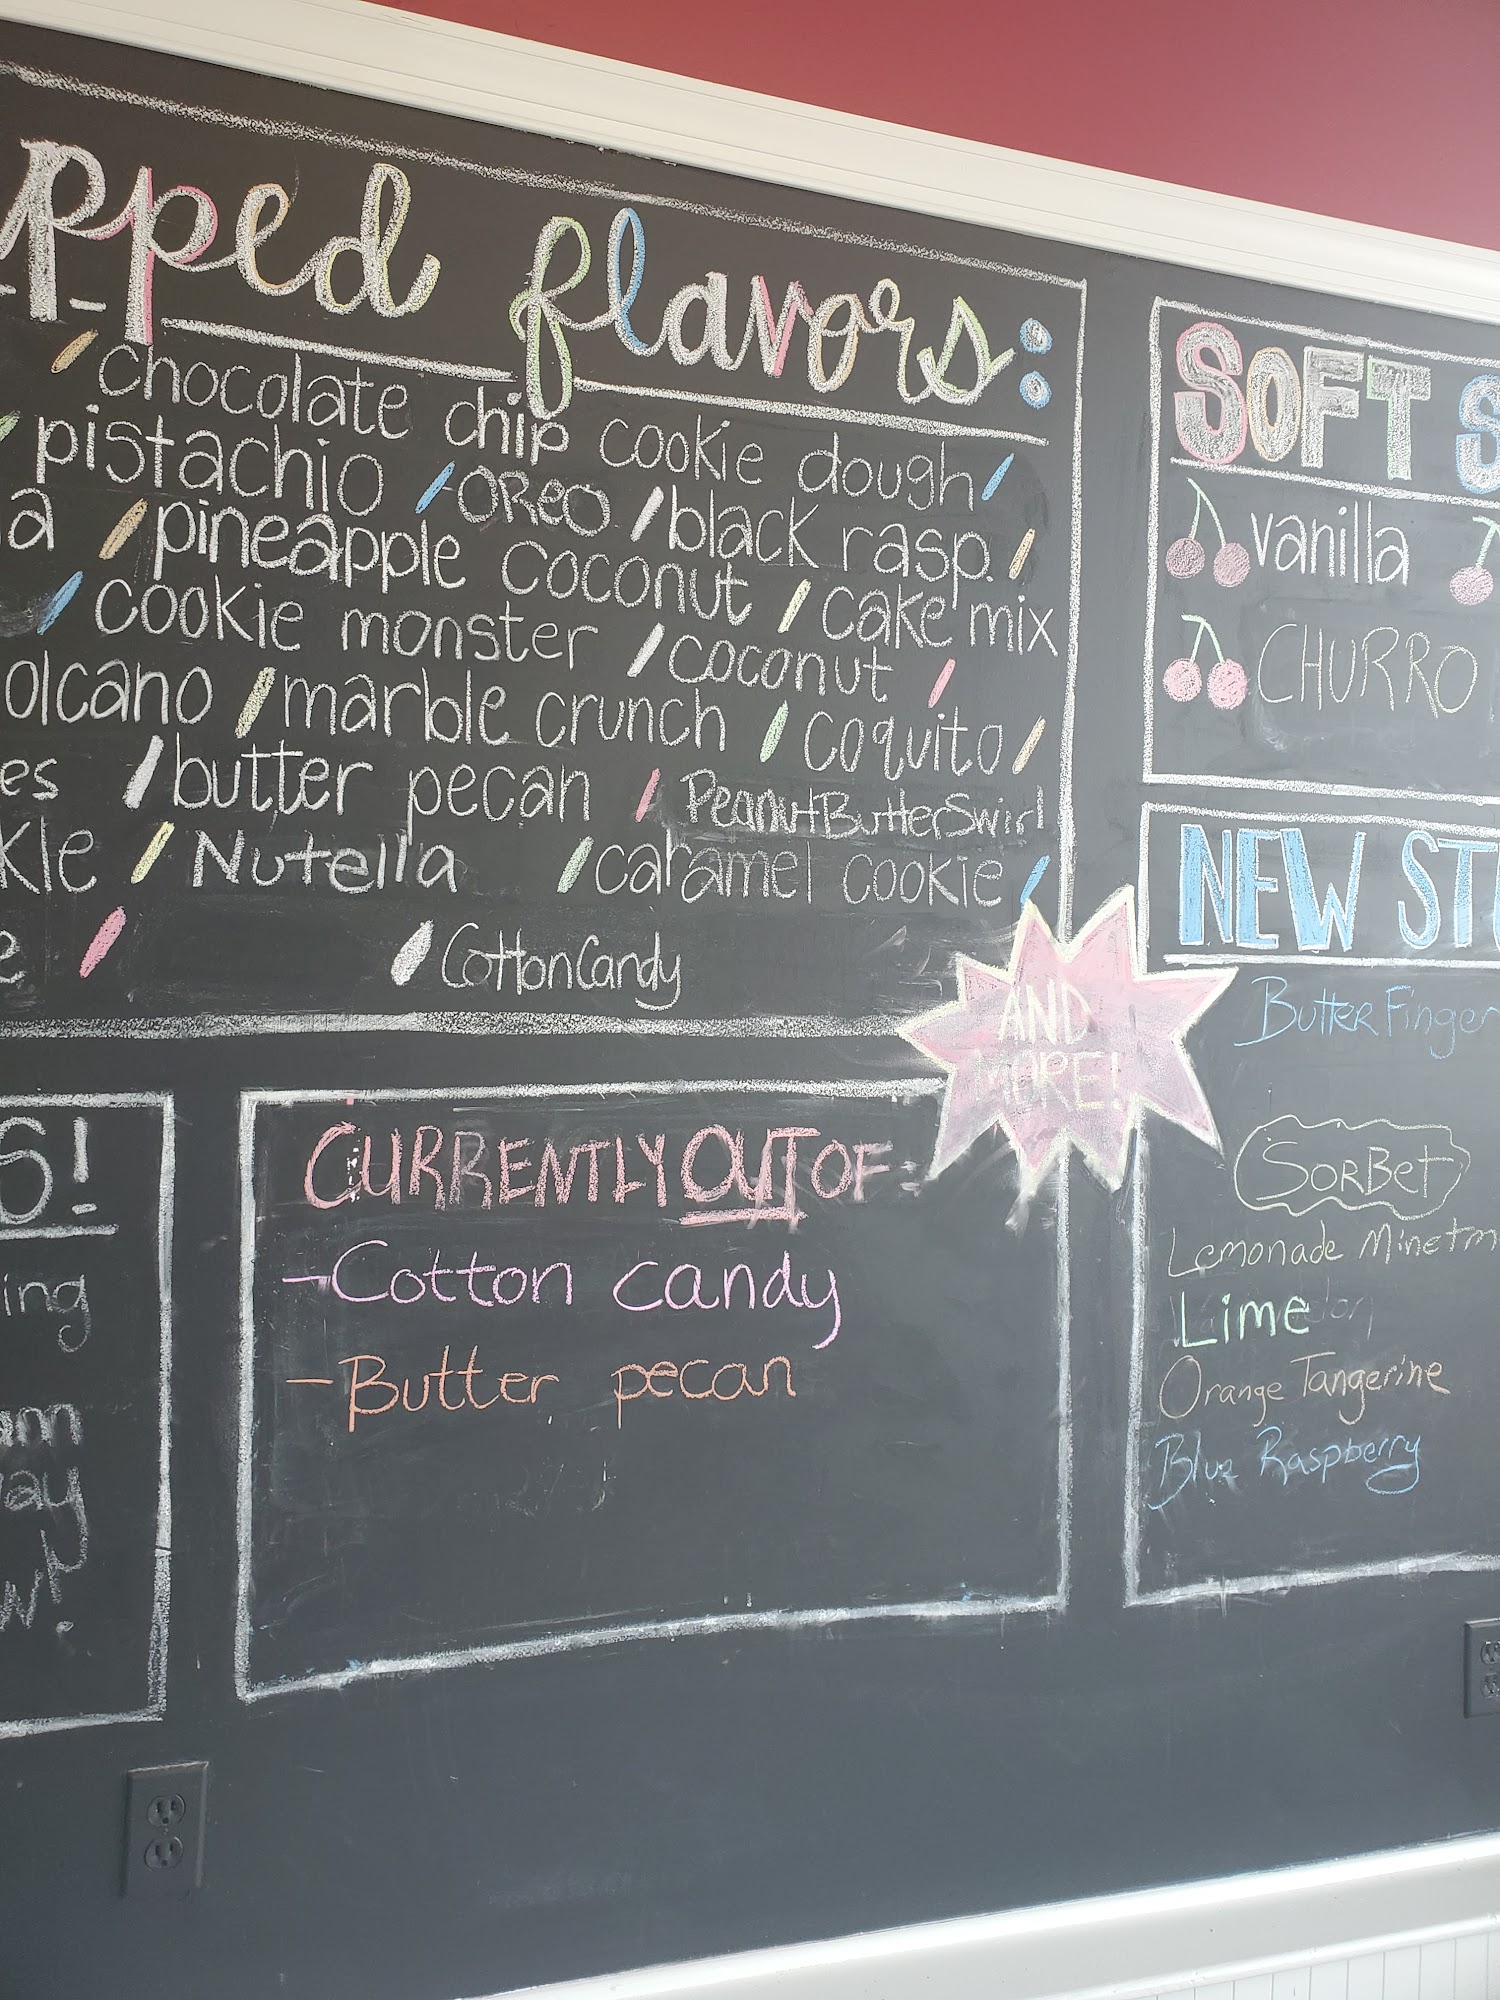 pped flavors:
chocolate chip cookie dough
pistachio OREO black rasp.
a pineapple coconut cake mix
cookie monster coconut
olcano marble crunch coquito
es butter pecan Peanut Butter Swirl
kie Nutella caramel cookie
e Cotton Candy
AND
MORE!
SOFT S
vanilla
CHURRO
NEW ST
Butter Finger
SORBET
Lemonade Minetm
Lime
Orange Tangerine
Blue Raspberry
CURRENTLY OUT OF:
-Cotton candy
-Butter pecan
S!
ing
am
ay
w!